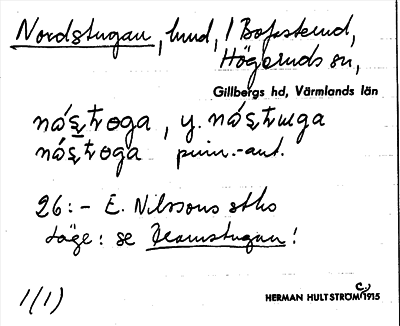 Nordstugan, lund, / Bofastend,
Högeruds sn,
Gillbergs hd, Värmlands län
nåʂƫoga, y. nåʂƫɯga
nåʂƫoga pum.-ant.
26:- E. Nilssons stho
Läge: se Hamstugan!
1(1)
HERMAN HULTSTRÖM 1915